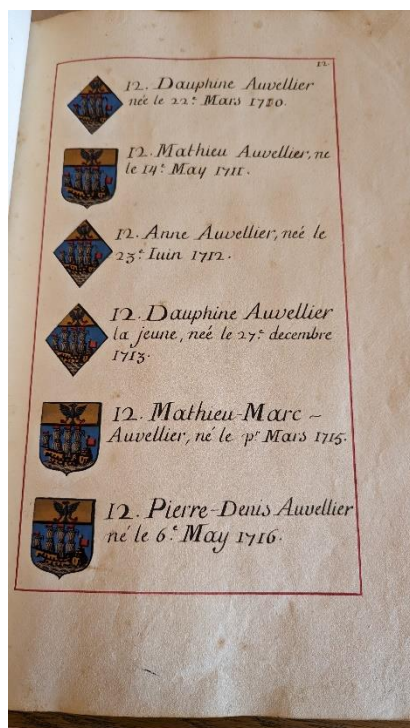 12.
12. Dauphine Auvellier
née le 22.e Mars 1710.
12. Mathieu Auvellier, ne
le 14.e May 1711.
12. Anne Auvellier, neé le
23.e Iuin 1712.
12. Dauphine Auvellier
la jeune, neé le 27.e decembre
1713.
12. Mathieu-Marc ~
Auvellier, né le pr Mars 1715.
12. Pierre-Denis Auvellier
né le 6.e May 1716.